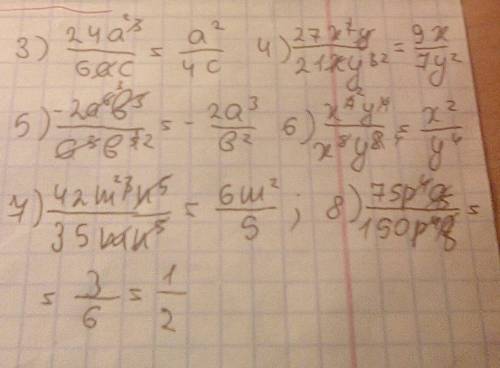 3) 24a³/6ac = a²/4c 4) 27x²y/21xy³ = 9x/7y²
5) -2a⁶b⁵/a³b⁷ = - 2a³/b² 6) x⁷y⁴/x⁵y⁸ = x²/y⁴
7) 42m³n⁵/35mn⁵ = 6m²/5 ; 8) 75p⁴q/150p⁴q =
= 3/6 = 1/2